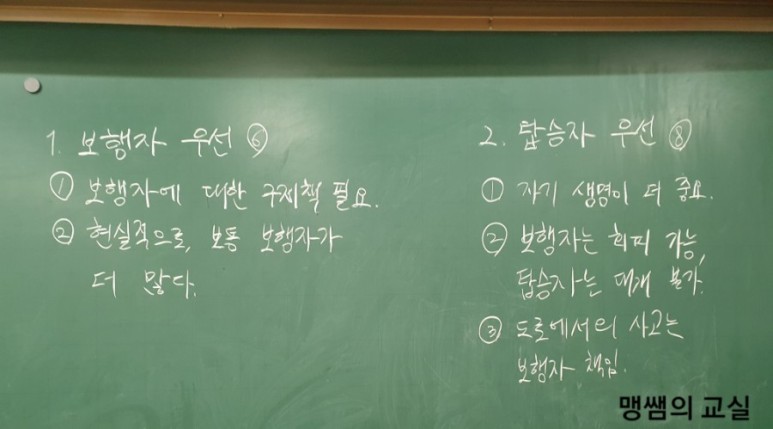 1. 보행자 우선 ⑥
① 보행자에 대한 구제책 필요.
② 현실적으로, 보통 보행자가
더 많다.
2. 탑승자 우선 ⑧
① 자기 생명이 더 중요.
② 보행자는 회피 가능,
탑승자는 대개 불가.
③ 도로에서의 사고는
보행자 책임.
맹쌤의 교실